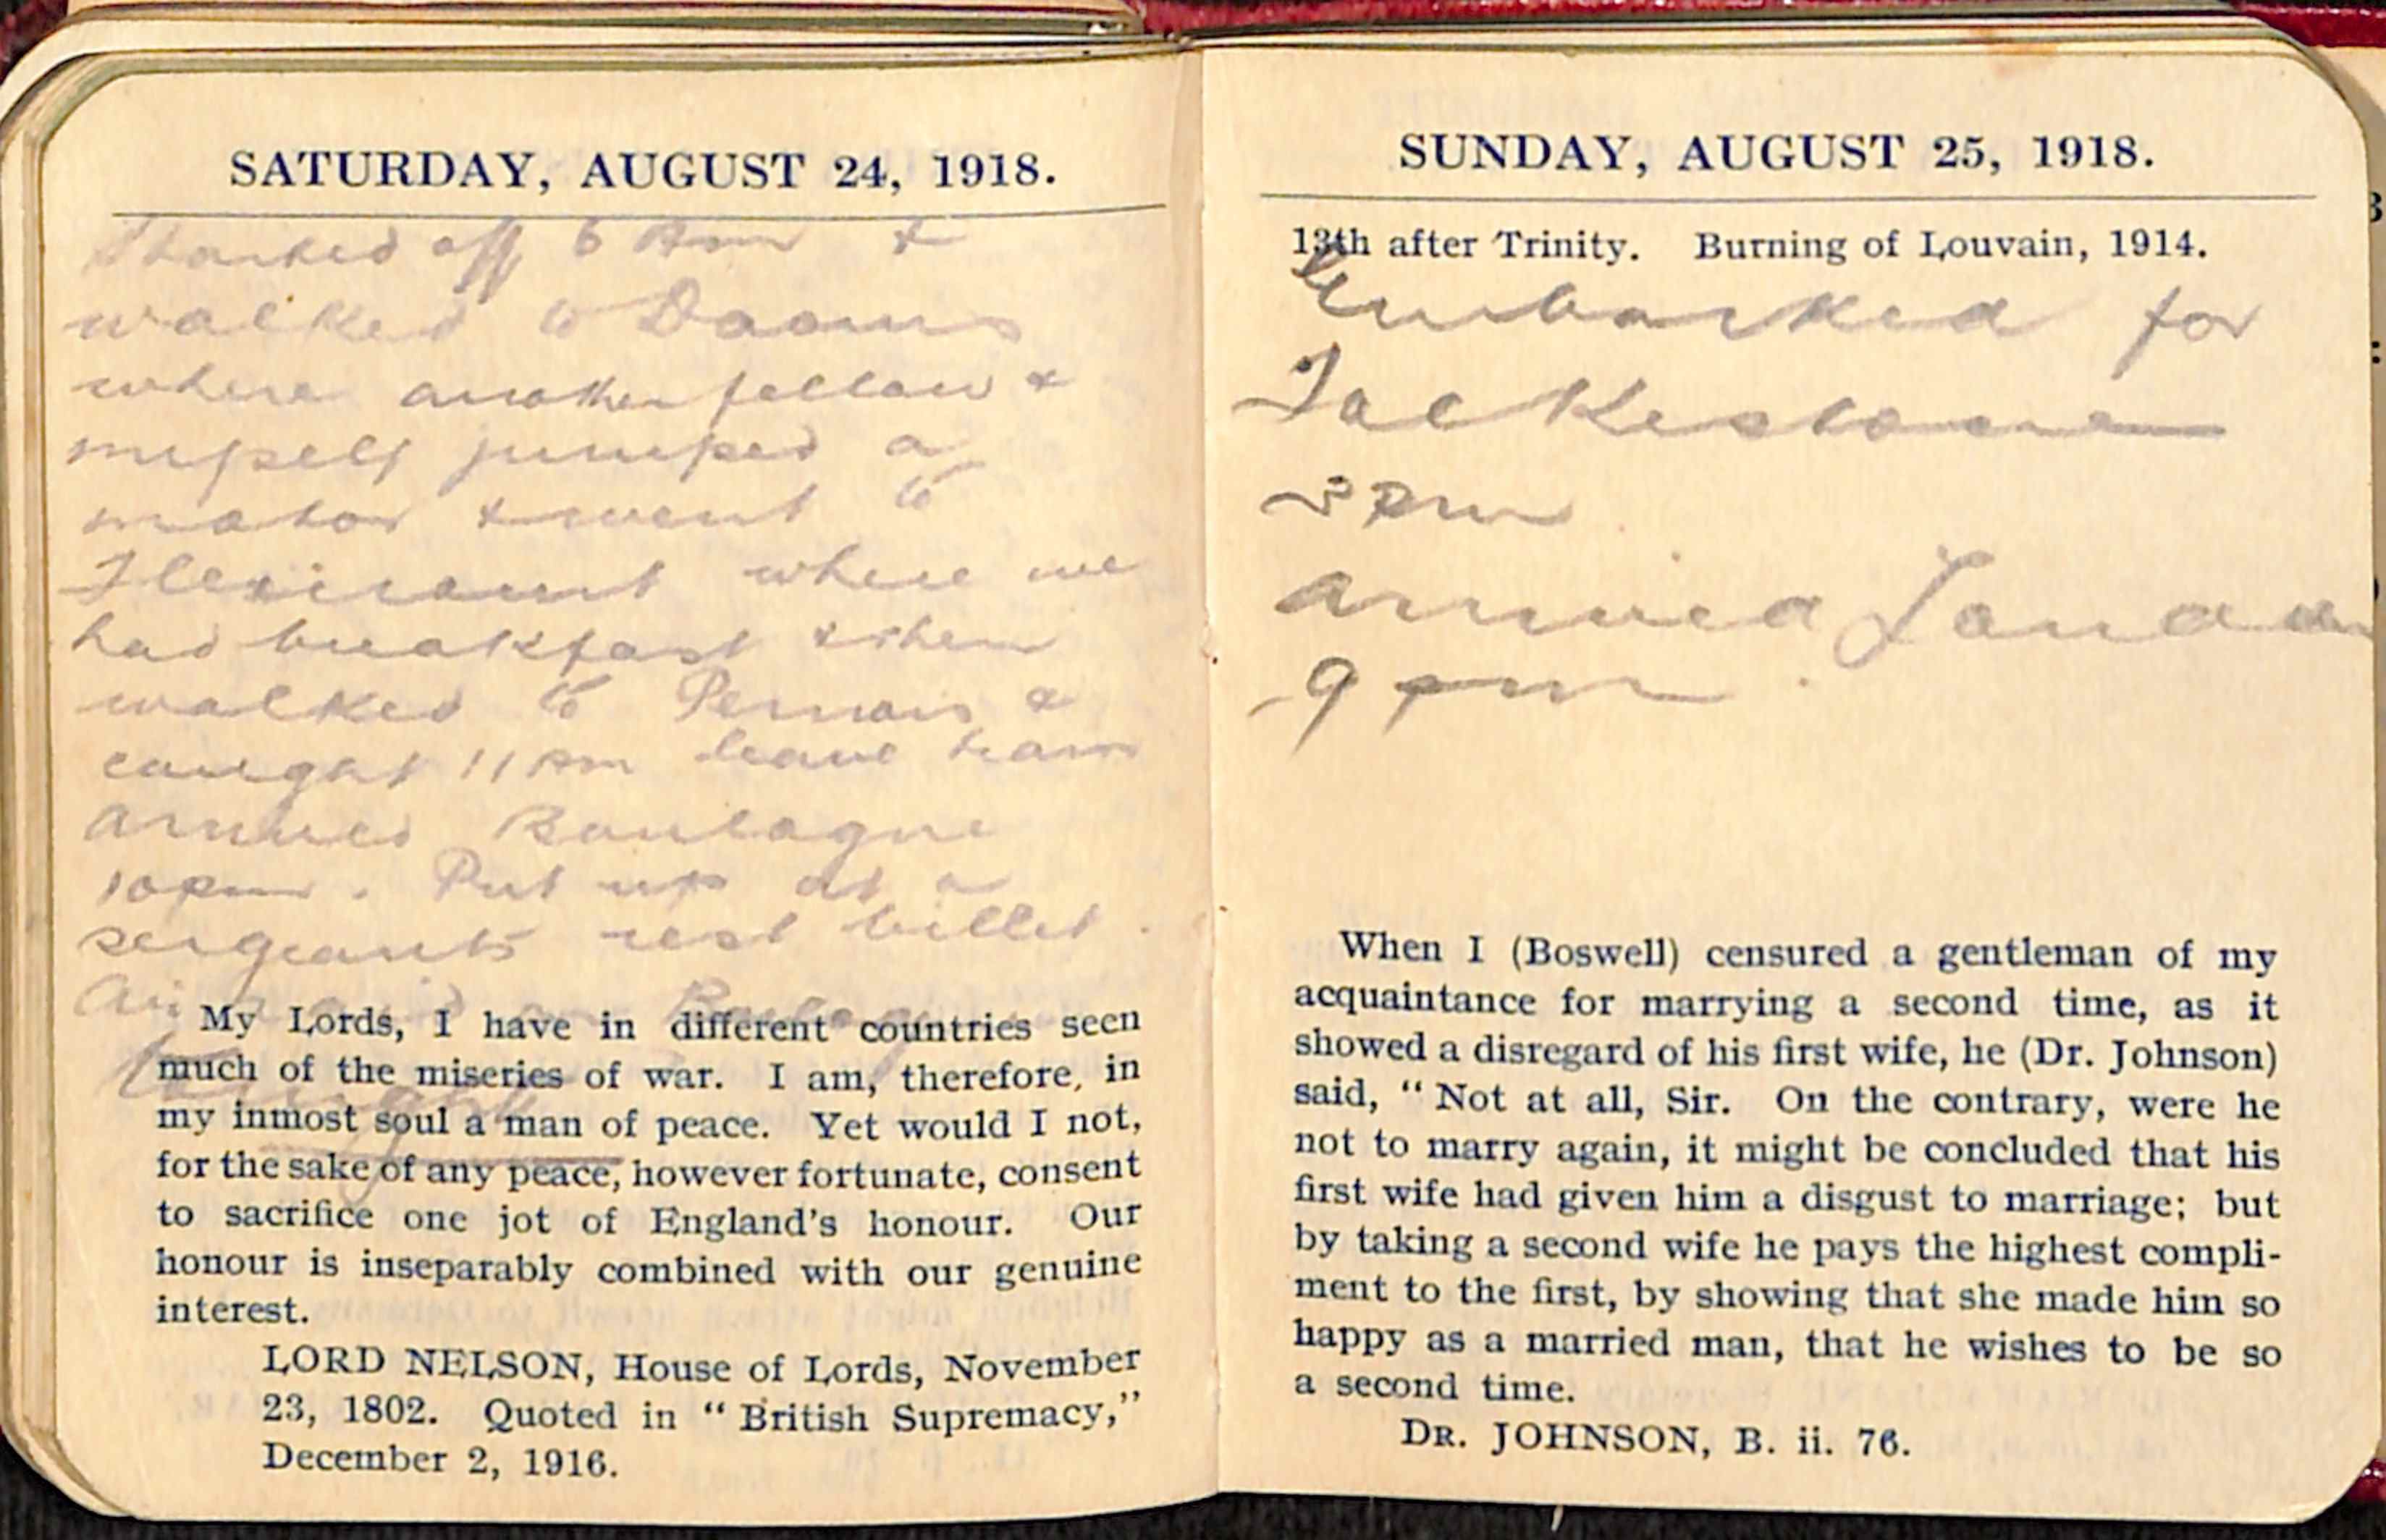 SATURDAY, AUGUST 24, 1918.
Started off 6 Am &
walked to Daours
where another fellow &
myself jumped a
motor & went to
Flexicourt where we
had breakfast & then
walked to Pernois &
caught 11 Am leave train
arrived Boulogne
10pm. Put up at a
sergeants rest billet.
Air raid on Boulogne
My Lords, I have in different countries seen
much of the miseries of war. I am, therefore, in
my inmost soul a man of peace. Yet would I not,
for the sake of any peace, however fortunate, consent
to sacrifice one jot of England's honour. Our
honour is inseparably combined with our genuine
interest.
LORD NELSON, House of Lords, November
23, 1802. Quoted in “British Supremacy,”
December 2, 1916.
SUNDAY, AUGUST 25, 1918.
13th after Trinity. Burning of Louvain, 1914.
Embarked for
Folkestone
3 pm
arrived London
9 pm.
When I (Boswell) censured a gentleman of my
acquaintance for marrying a second time, as it
showed a disregard of his first wife, he (Dr. Johnson)
said, “Not at all, Sir. On the contrary, were he
not to marry again, it might be concluded that his
first wife had given him a disgust to marriage; but
by taking a second wife he pays the highest compli-
ment to the first, by showing that she made him so
happy as a married man, that he wishes to be so
a second time.
DR. JOHNSON, B. ii. 76.